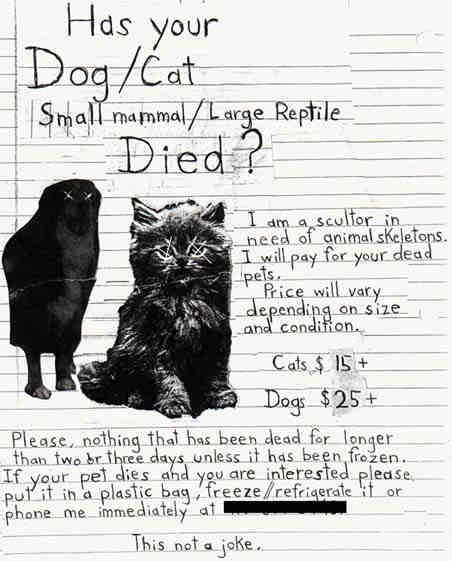 Has your
Dog/Cat
Small mammal/Large Reptile
Died?
I am a scultor in
need of animal skeletons.
I will pay for your dead
pets.
Price will vary
depending on size
and condition.
Cats $ 15+
Dogs $25+
Please, nothing that has been dead for longer
than two or three days unless it has been frozen.
If your pet dies and you are interested please
put it in a plastic bag, freeze/refrigerate it or
phone me immediately at
This not a joke.